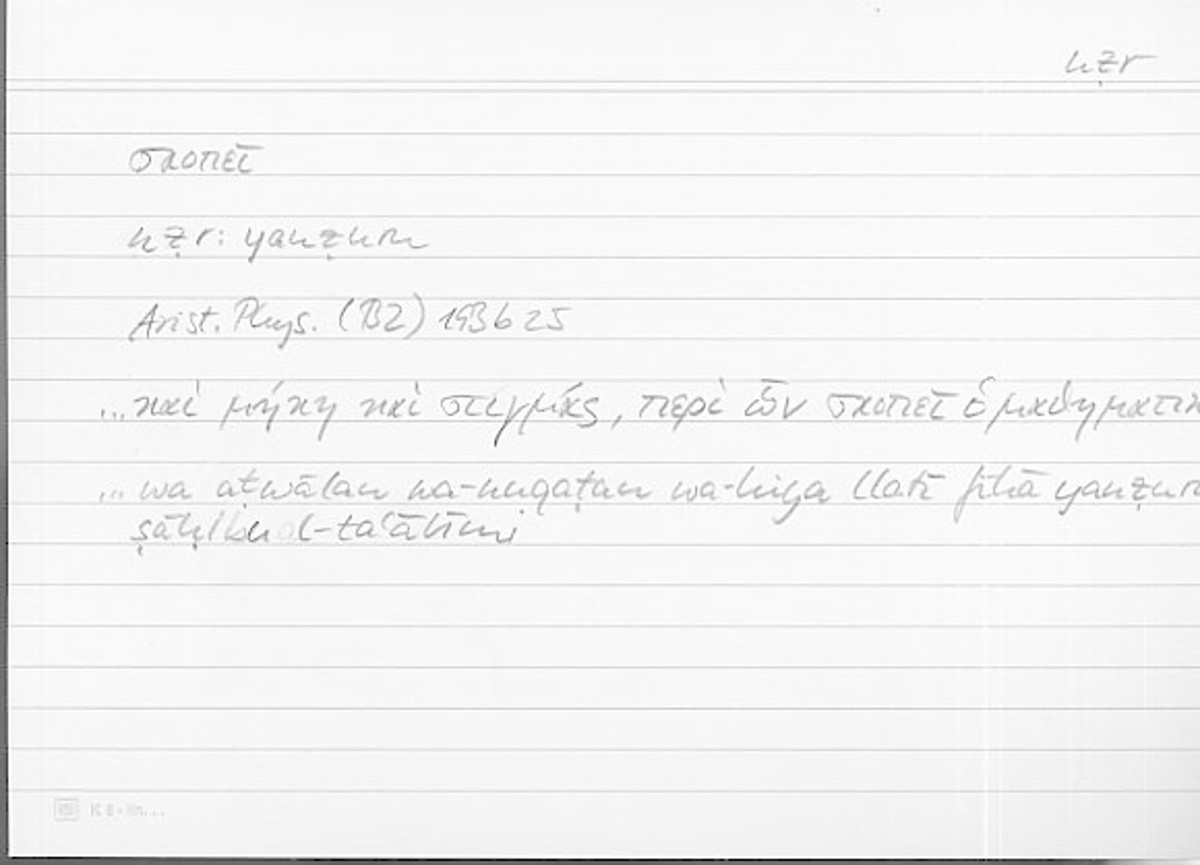 nẓr
σκοπεῖ
nẓr: yanẓuru
Arist. Phys. (B2) 193b25
...καὶ μήκη καὶ στιγμάς, περὶ ὧν σκοπεῖ ὁ μαθηματικ
...wa aṭwālan wa-nuqaṭan wa-hiya llatī fīhā yanẓuru
ṣāḥibu l-taʿālīmi